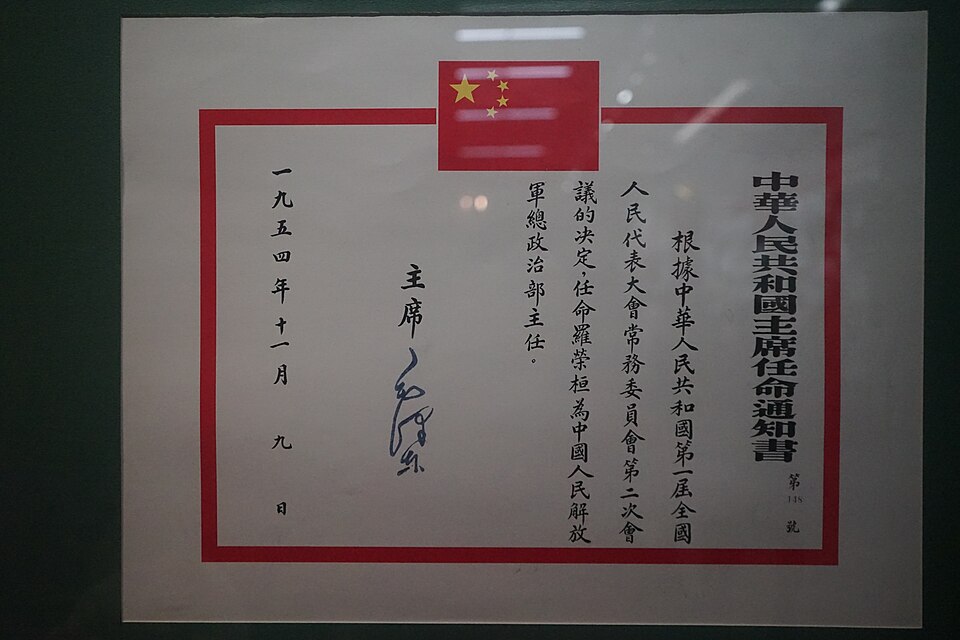 中華人民共和國主席任命通知書
第148號
根據中華人民共和國第一屆全國
人民代表大會常務委員會第二次會
議的決定，任命羅榮桓為中國人民解放
軍總政治部主任。
主席 毛澤東
一九五四年十一月九日